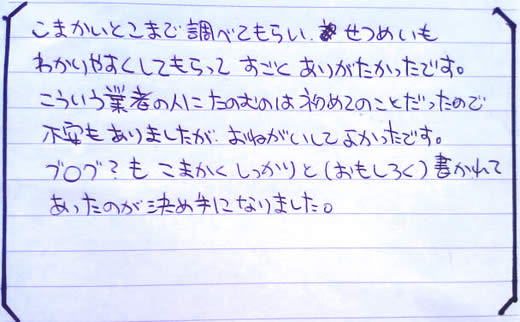 こまかいとこまで調べてもらい、せつめいも
わかりやすくしてもらって すごく ありがたかったです。
こういう業者の人にたのむのは初めてのことだったので
不安もありましたが、おねがいしてよかったです。
ブログ?も こまかく しっかりと(おもしろく)書かれて
あったのが決め手になりました。